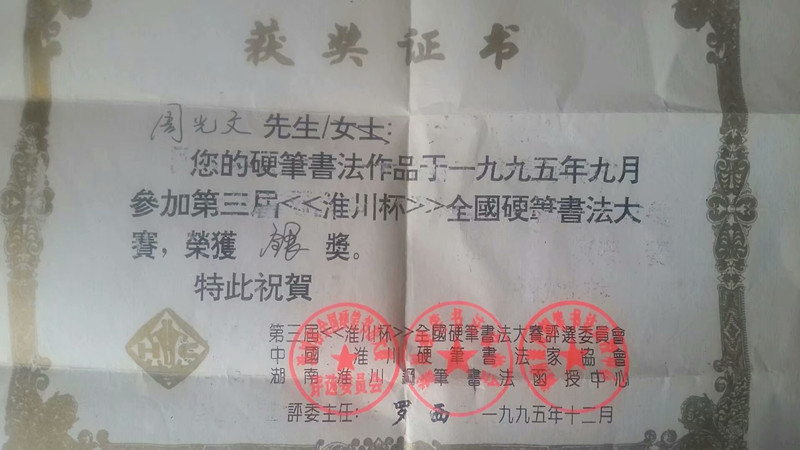 获奖证书
周光文 先生/女士:
您的硬筆書法作品于一九九五年九月
參加第三届<<淮川杯>>全國硬筆書法大
賽，榮獲 銀 獎。
特此祝賀
第三屆<<淮川杯>>全國硬筆書法大賽評選委員會
中國淮川硬筆書法家協會
湖南淮川鋼筆書法函授中心
評委主任: 罗西 一九九五年十二月
评选委员会